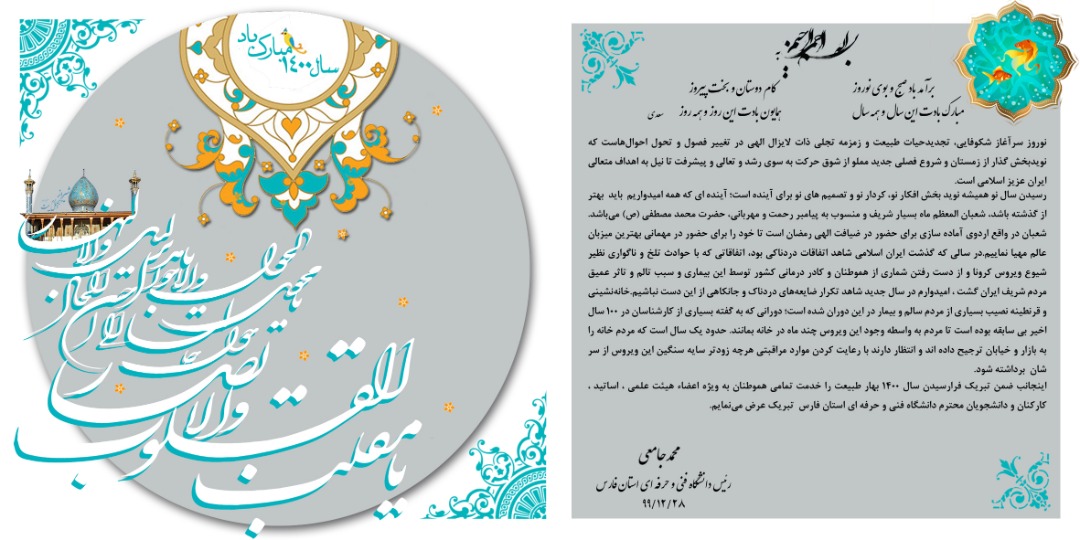 مبارک باد
سال ۱۴۰۰
یا مقلب القلوب
والابصار
یا مدبر اللیل والنهار
یا محول الحول والاحوال
حول حالنا الی احسن الحال
به
بسم الله الرحمن الرحیم
برآمد باد صبح و بوی نوروز
بکام دوستان و بخت پیروز
مبارک بادت این سال و همه سال
همایون بادت این روز و همه روز
سعدی
نوروز سرآغاز شکوفایی، تجدیدحیات طبیعت و زمزمه تجلی ذات لایزال الهی در تغییر فصول و تحول احوال‌هاست که
نویدبخش گذار از زمستان و شروع فصلی جدید مملو از شوق حرکت به سوی رشد و تعالی و پیشرفت تا نیل به اهداف متعالی
ایران عزیز اسلامی است.
رسیدن سال نو همیشه نوید بخش افکار نو، کردار نو و تصمیم های نو برای آینده است؛ آینده ای که همه امیدواریم باید بهتر
از گذشته باشد، شعبان المعظم ماه بسیار شریف و منسوب به پیامبر رحمت و مهربانی، حضرت محمد مصطفی (ص) می‌باشد.
شعبان در واقع اردوی آماده سازی برای حضور در ضیافت الهی رمضان است تا خود را برای حضور در مهمانی بهترین میزبان
عالم مهیا نماییم.در سالی که گذشت ایران اسلامی شاهد اتفاقات دردناکی بود، اتفاقاتی که با حوادث تلخ و ناگواری نظیر
شیوع ویروس کرونا و از دست رفتن شماری از هموطنان و کادر درمانی کشور توسط این بیماری و سبب تالم و تاثر عمیق
مردم شریف ایران گشت ، امیدوارم در سال جدید شاهد تکرار ضایعه‌های دردناک و جانکاهی از این دست نباشیم.خانه‌نشینی
و قرنطینه نصیب بسیاری از مردم سالم و بیمار در این دوران شده است؛ دورانی که به گفته بسیاری از کارشناسان در ۱۰۰ سال
اخیر بی سابقه بوده است تا مردم به واسطه وجود این ویروس چند ماه در خانه بمانند. حدود یک سال است که مردم خانه را
به بازار و خیابان ترجیح داده اند و انتظار دارند با رعایت کردن موارد مراقبتی هرچه زودتر سایه سنگین این ویروس از سر
شان برداشته شود.
اینجانب ضمن تبریک فرارسیدن سال ۱۴۰۰ بهار طبیعت را خدمت تمامی هموطنان به ویژه اعضاء هیئت علمی ، اساتید ،
کارکنان و دانشجویان محترم دانشگاه فنی و حرفه ای استان فارس تبریک عرض می‌نمایم.
محمد جامعی
رئیس دانشگاه فنی و حرفه ای استان فارس
۹۹/۱۲/۲۸